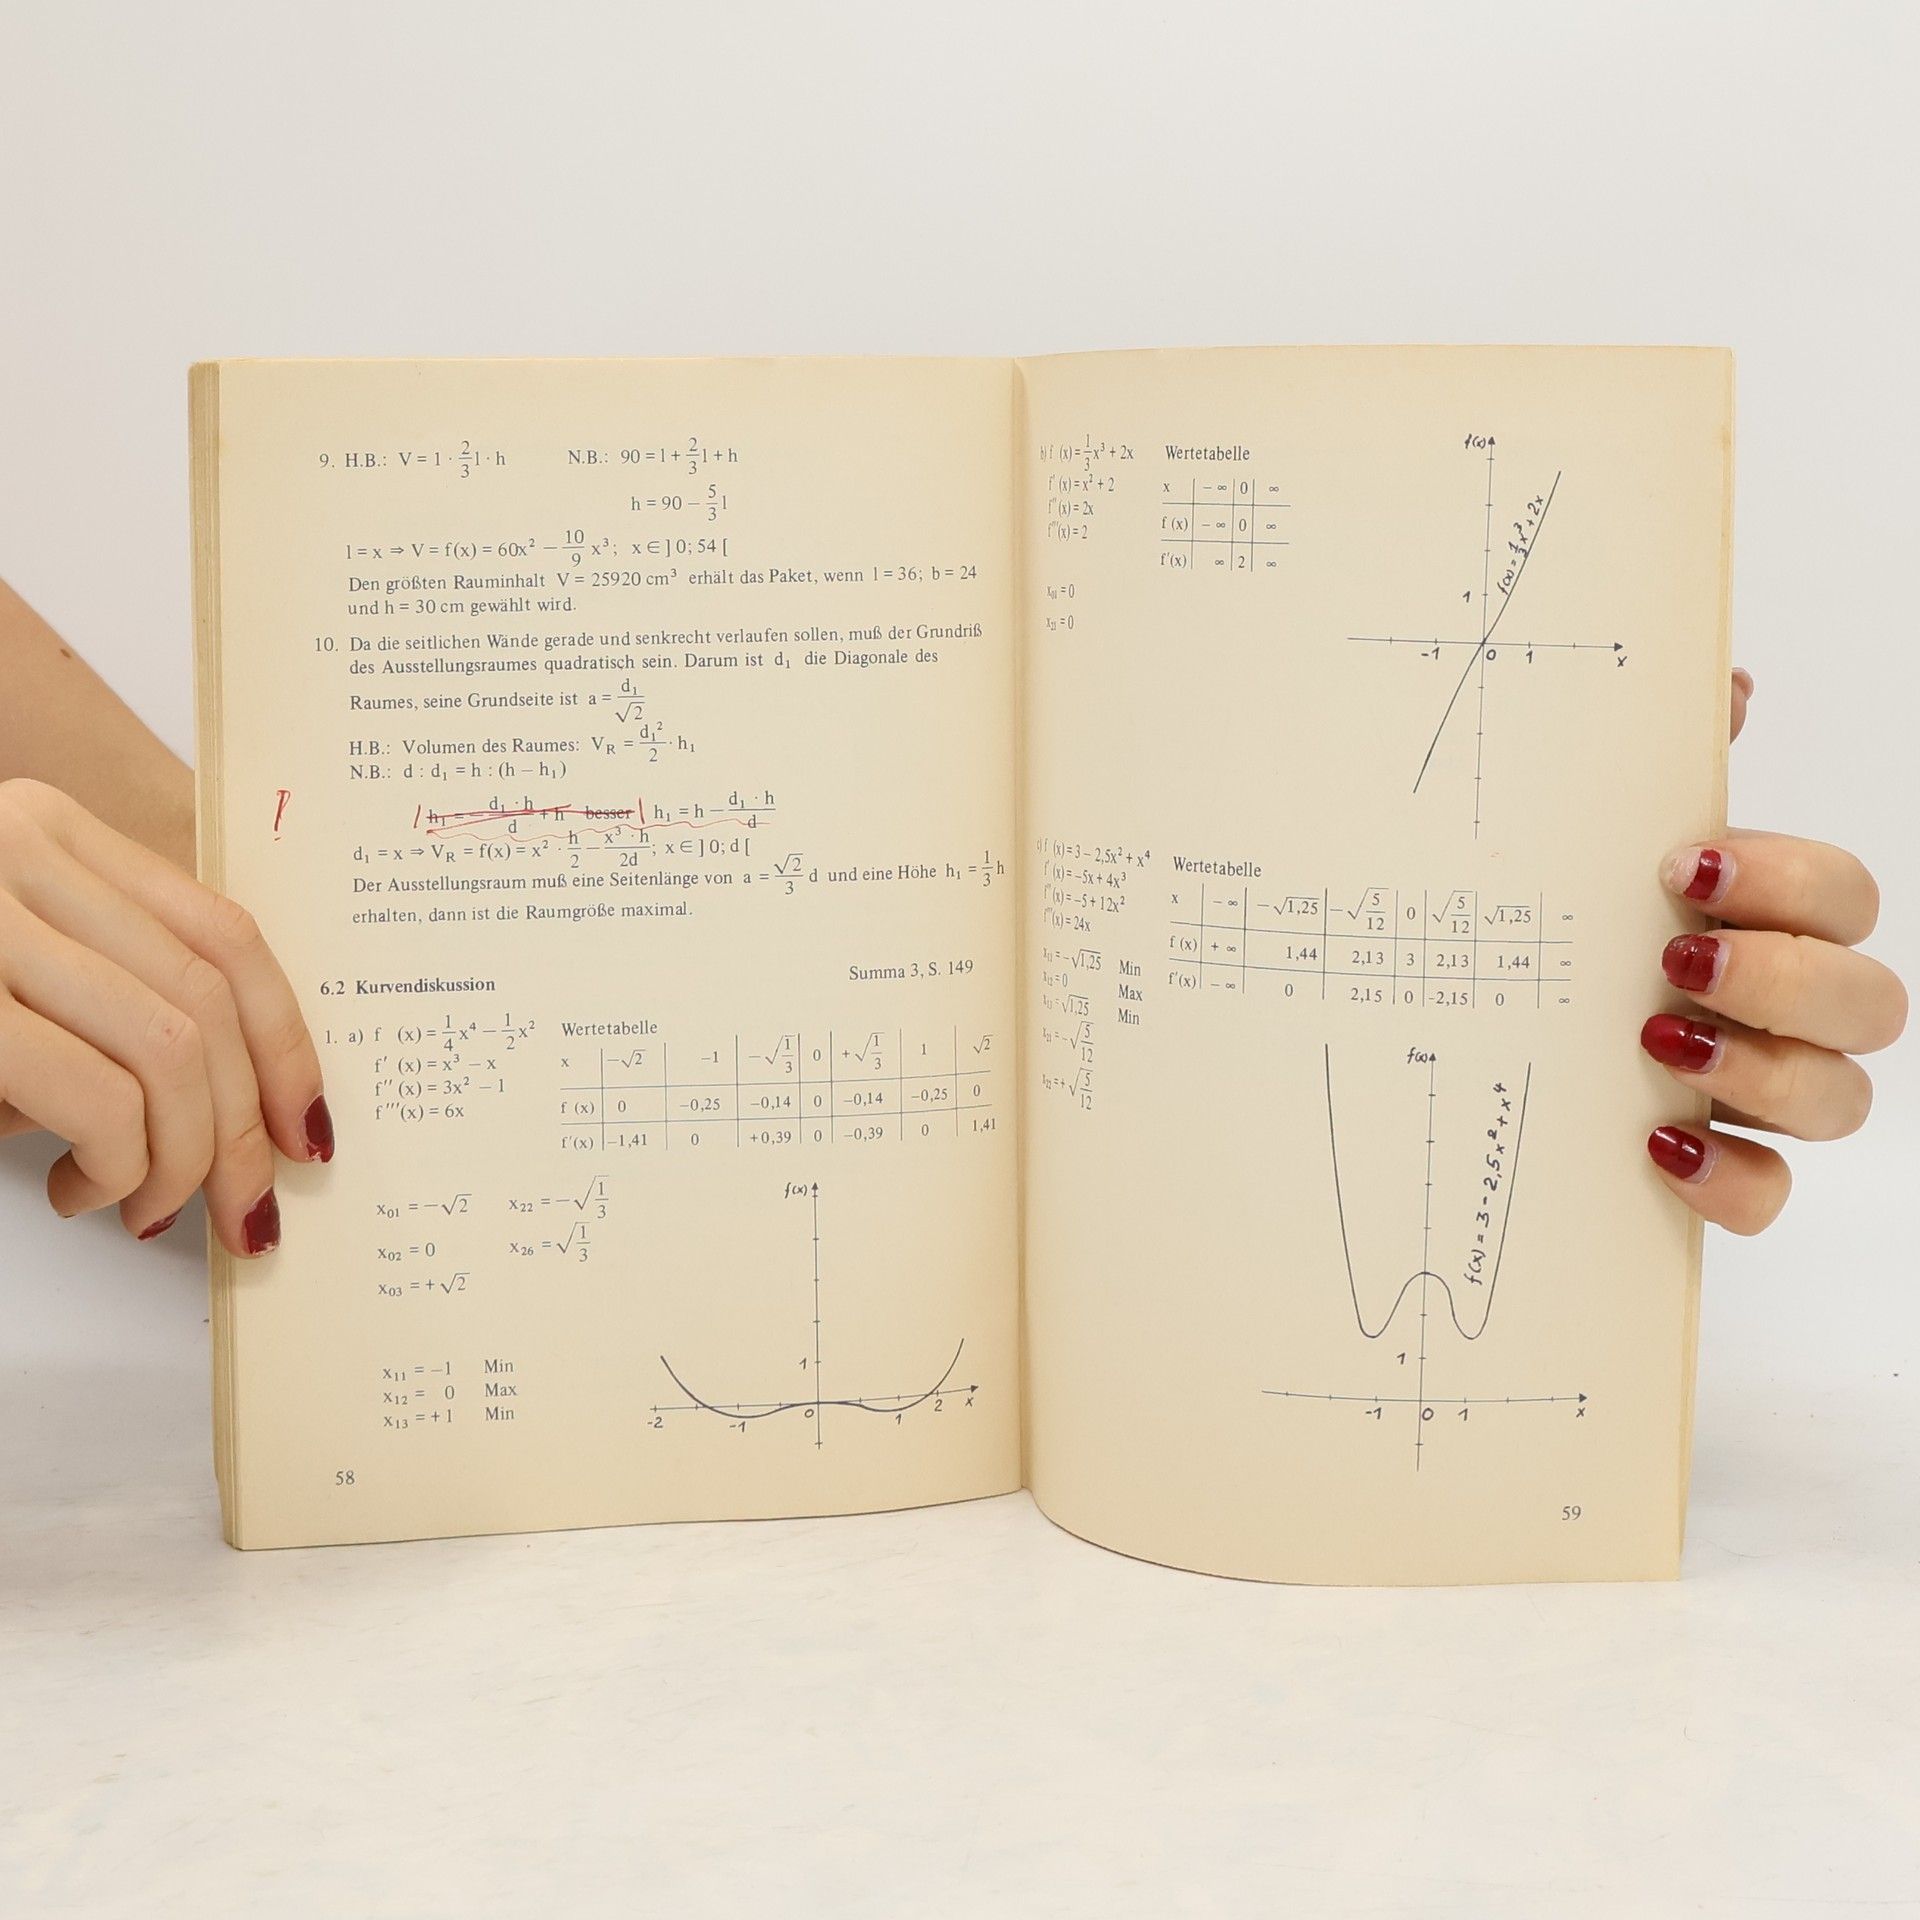 9. H.B.: V = l · 2/3 l · h N.B.: 90 = l + 2/3 l + h
h = 90 − 5/3 l
l = x ⇒ V = f(x) = 60x² − 10/9 x³; x ∈ ] 0; 54 [
Den größten Rauminhalt V = 25920 cm³ erhält das Paket, wenn l = 36; b = 24
und h = 30 cm gewählt wird.
10. Da die seitlichen Wände gerade und senkrecht verlaufen sollen, muß der Grundriß
des Ausstellungsraumes quadratisch sein. Darum ist d₁ die Diagonale des
Raumes, seine Grundseite ist a = d₁/√2
H.B.: Volumen des Raumes: V_R = d₁²/2 · h₁
N.B.: d : d₁ = h : (h − h₁)
! | h₁ = − d₁ · h/d + h besser | h₁ = h − d₁ · h/d
d₁ = x ⇒ V_R = f(x) = x² · h/2 − x³ · h/2d; x ∈ ] 0; d [
Der Ausstellungsraum muß eine Seitenlänge von a = √2/3 d und eine Höhe h₁ = 1/3 h
erhalten, dann ist die Raumgröße maximal.
6.2 Kurvendiskussion Summa 3, S. 149
1. a) f (x) = 1/4 x⁴ − 1/2 x² Wertetabelle
f' (x) = x³ − x
f'' (x) = 3x² − 1
f'''(x) = 6x
x −√2 −1 −√1/3 0 +√1/3 1 √2
f (x) 0 −0,25 −0,14 0 −0,14 −0,25 0
f'(x) −1,41 0 +0,39 0 −0,39 0 1,41
x₀₁ = −√2 x₂₂ = −√1/3
x₀₂ = 0 x₂₆ = √1/3
x₀₃ = + √2
x₁₁ = −1 Min
x₁₂ = 0 Max
x₁₃ = +1 Min
f(x)
1
-2 -1 0 1 2 x
58
b) f (x) = 1/3 x³ + 2x Wertetabelle
f' (x) = x² + 2
f'' (x) = 2x
f'''(x) = 2
x − ∞ 0 ∞
f (x) − ∞ 0 ∞
f'(x) ∞ 2 ∞
x₀₁ = 0
x₂₁ = 0
f(x)
f(x) = 1/3 x³ + 2x
1
-1 0 1 x
c) f (x) = 3 − 2,5x² + x⁴ Wertetabelle
f' (x) = −5x + 4x³
f'' (x) = −5 + 12x²
f'''(x) = 24x
x − ∞ −√1,25 −√5/12 0 √5/12 √1,25 ∞
f (x) + ∞ 1,44 2,13 3 2,13 1,44 ∞
f'(x) − ∞ 0 2,15 0 -2,15 0 ∞
x₁₁ = −√1,25 Min
x₁₂ = 0 Max
x₁₃ = √1,25 Min
x₂₁ = −√5/12
x₂₂ = + √5/12
f(x)
f(x) = 3 - 2,5x² + x⁴
1
-1 0 1 x
59